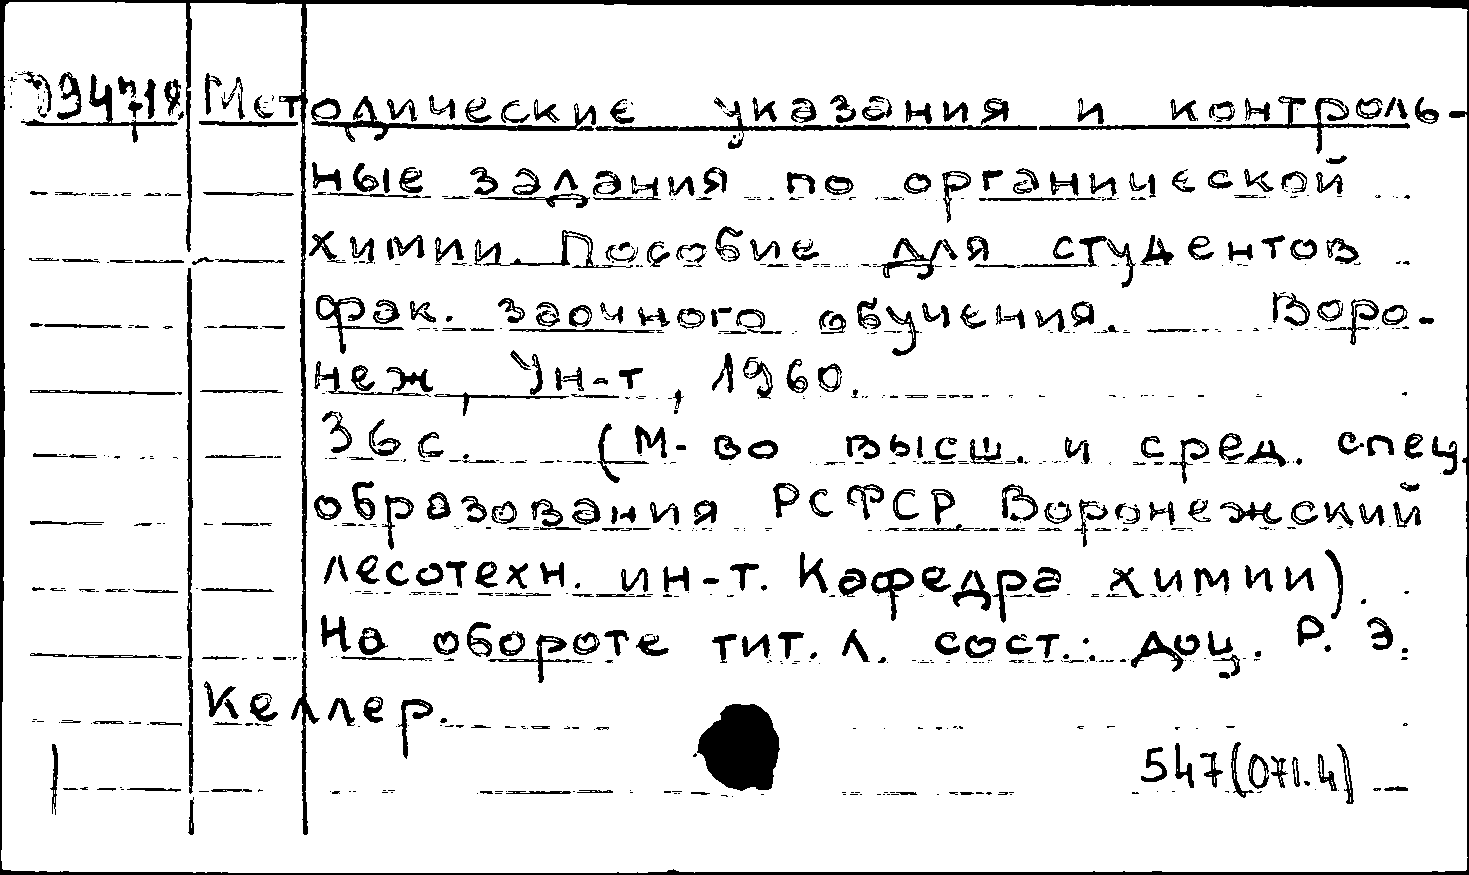 Методические указания и контроль-
ные задания по органической
химии. Пособие для студентов
фак. заочного обучения. Воро-
неж, Ун-т, 1960.
36 с. (М-во высш. и сред. спец.
образования РСФСР. Воронежский
лесотехн. ин-т. Кафедра химии).
На обороте тит. л. сост.: доц. Р. Э.
Келлер.
547(071.4)